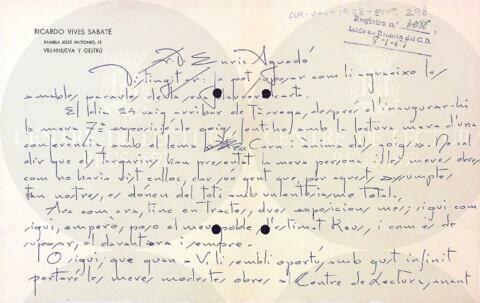 RICARDO VIVES SABATÉ
RAMBLA JOSÉ ANTONIO, 15
VILLANUEVA Y GELTRÚ
Registro nº
Sr. D. Enric Aguadó
Distingit sr: Ja pot suposar com li agraeixo les
amables paraules de la seva darrera carta.
El dia 24 vaig arribar de Tàrrega, després d'inaugurar-hi
la meva 7ª exposició de goigs, junt ho la lectura meva d'una
conferència amb el lema Carn i ànima dels goigs. No cal
dir que els targarins han presentat la meva persona i les meves obres
com no havia vist enlloc, clar, són gent que, per aquests assumptes
tan nostres, es donen del tot i amb un entusiasme total.
Ara com ara, tinc en Tractes, dues exposicions més; sigui com
sigui, empero, poso el meu poble, d'estimat Reus, i com es de
suposar, al davant ara i sempre.
O sigui; que quan a Vi. li sembli oportú, amb gust infinit
portaré les meves modestes obres al Centre de Lectura, anant